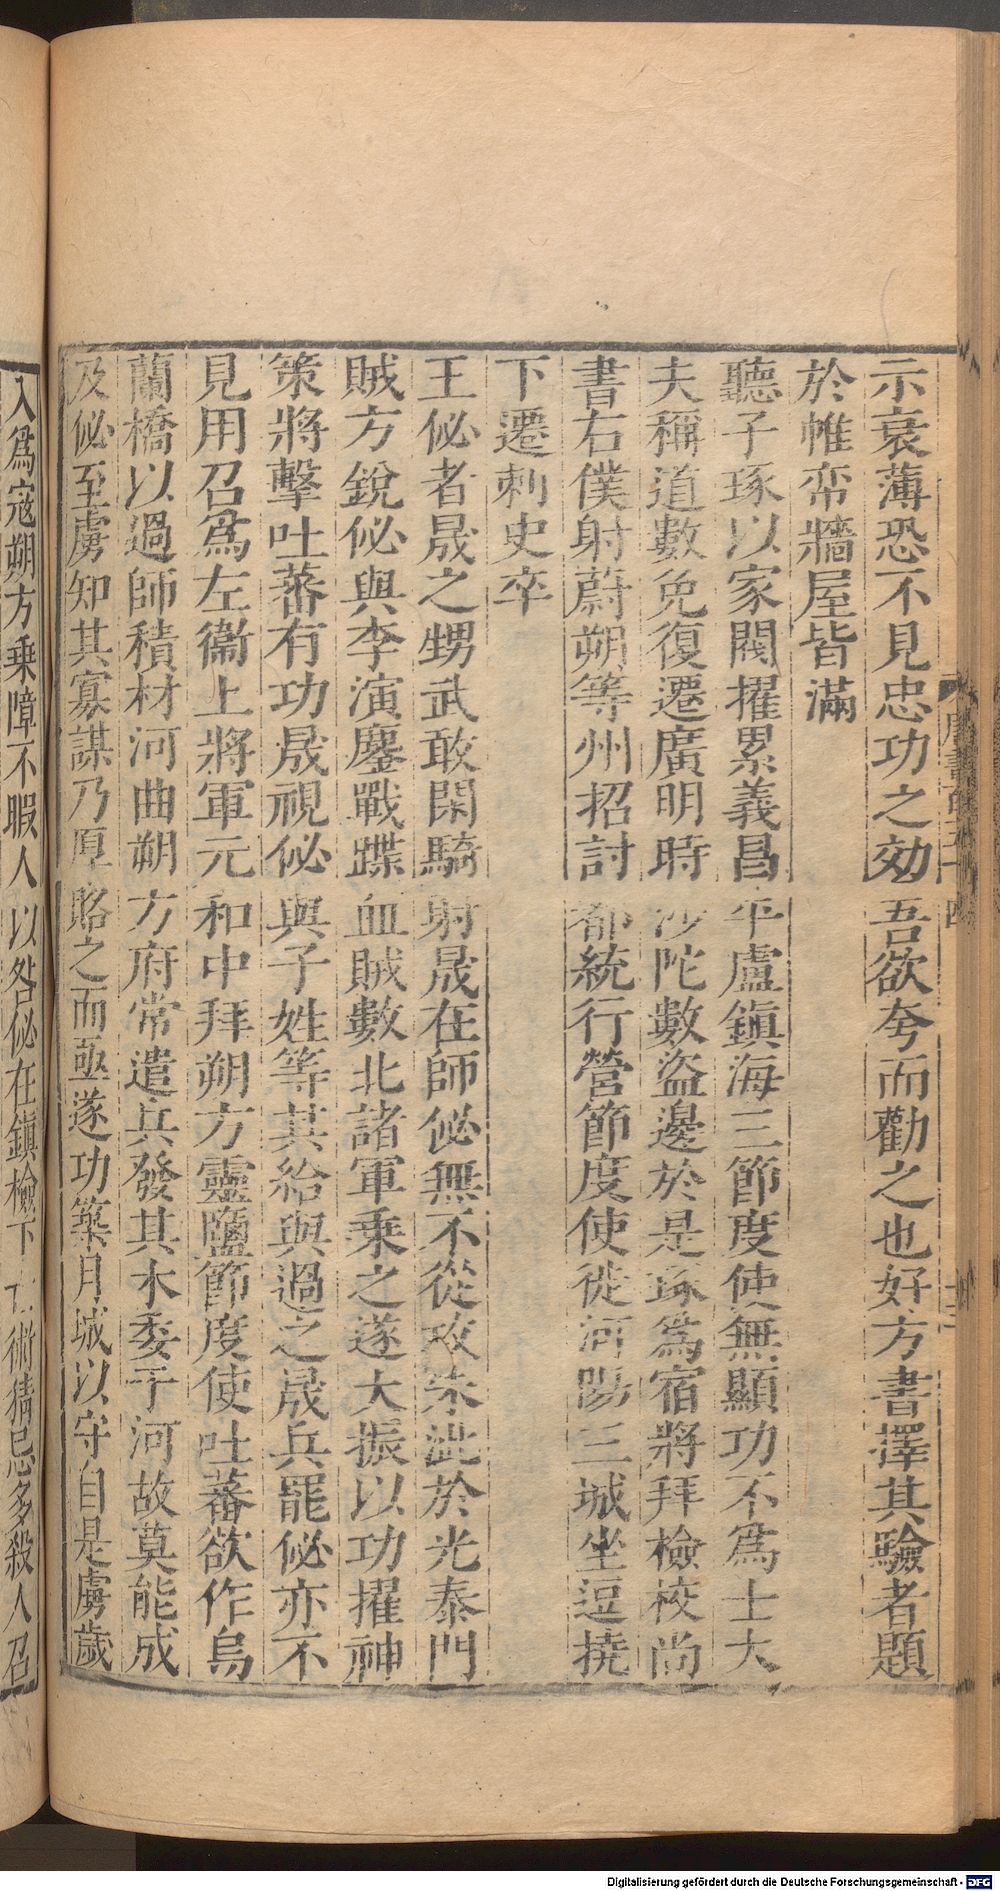 示衰薄恐不見忠功之効吾欲夸而勸之也好方書擇其驗者題
於帷帟牆屋皆滿
聽子琢以家閥擢累義昌平盧鎮海三節度使無顯功不爲士大
夫稱道數免復遷廣明時沙陀數盜邊於是琢爲宿將拜檢校尚
書右僕射蔚朔等州招討都統行營節度使徙河陽三城坐逗撓
下遷刺史卒
王佖者晟之甥武敢閑騎射晟在師佖無不從攻朱泚於光泰門
賊方銳佖與李演鏖戰蹀血賊數北諸軍乘之遂大振以功擢神
策將擊吐蕃有功晟視佖與子姓等其給與過之晟兵罷佖亦不
見用召爲左衞上將軍元和中拜朔方靈鹽節度使吐蕃欲作烏
蘭橋以過師積材河曲朔方府常遣兵發其木委于河故莫能成
及佖至虜知其寡謀乃厚賂之而亟遂功築月城以守自是虜歲
入爲寇朔方乘障不暇人以咎佖在鎮檢下亡術猜忌多殺人召
唐書百五十四
十三
Digitalisierung gefördert durch die Deutsche Forschungsgemeinschaft - DFG